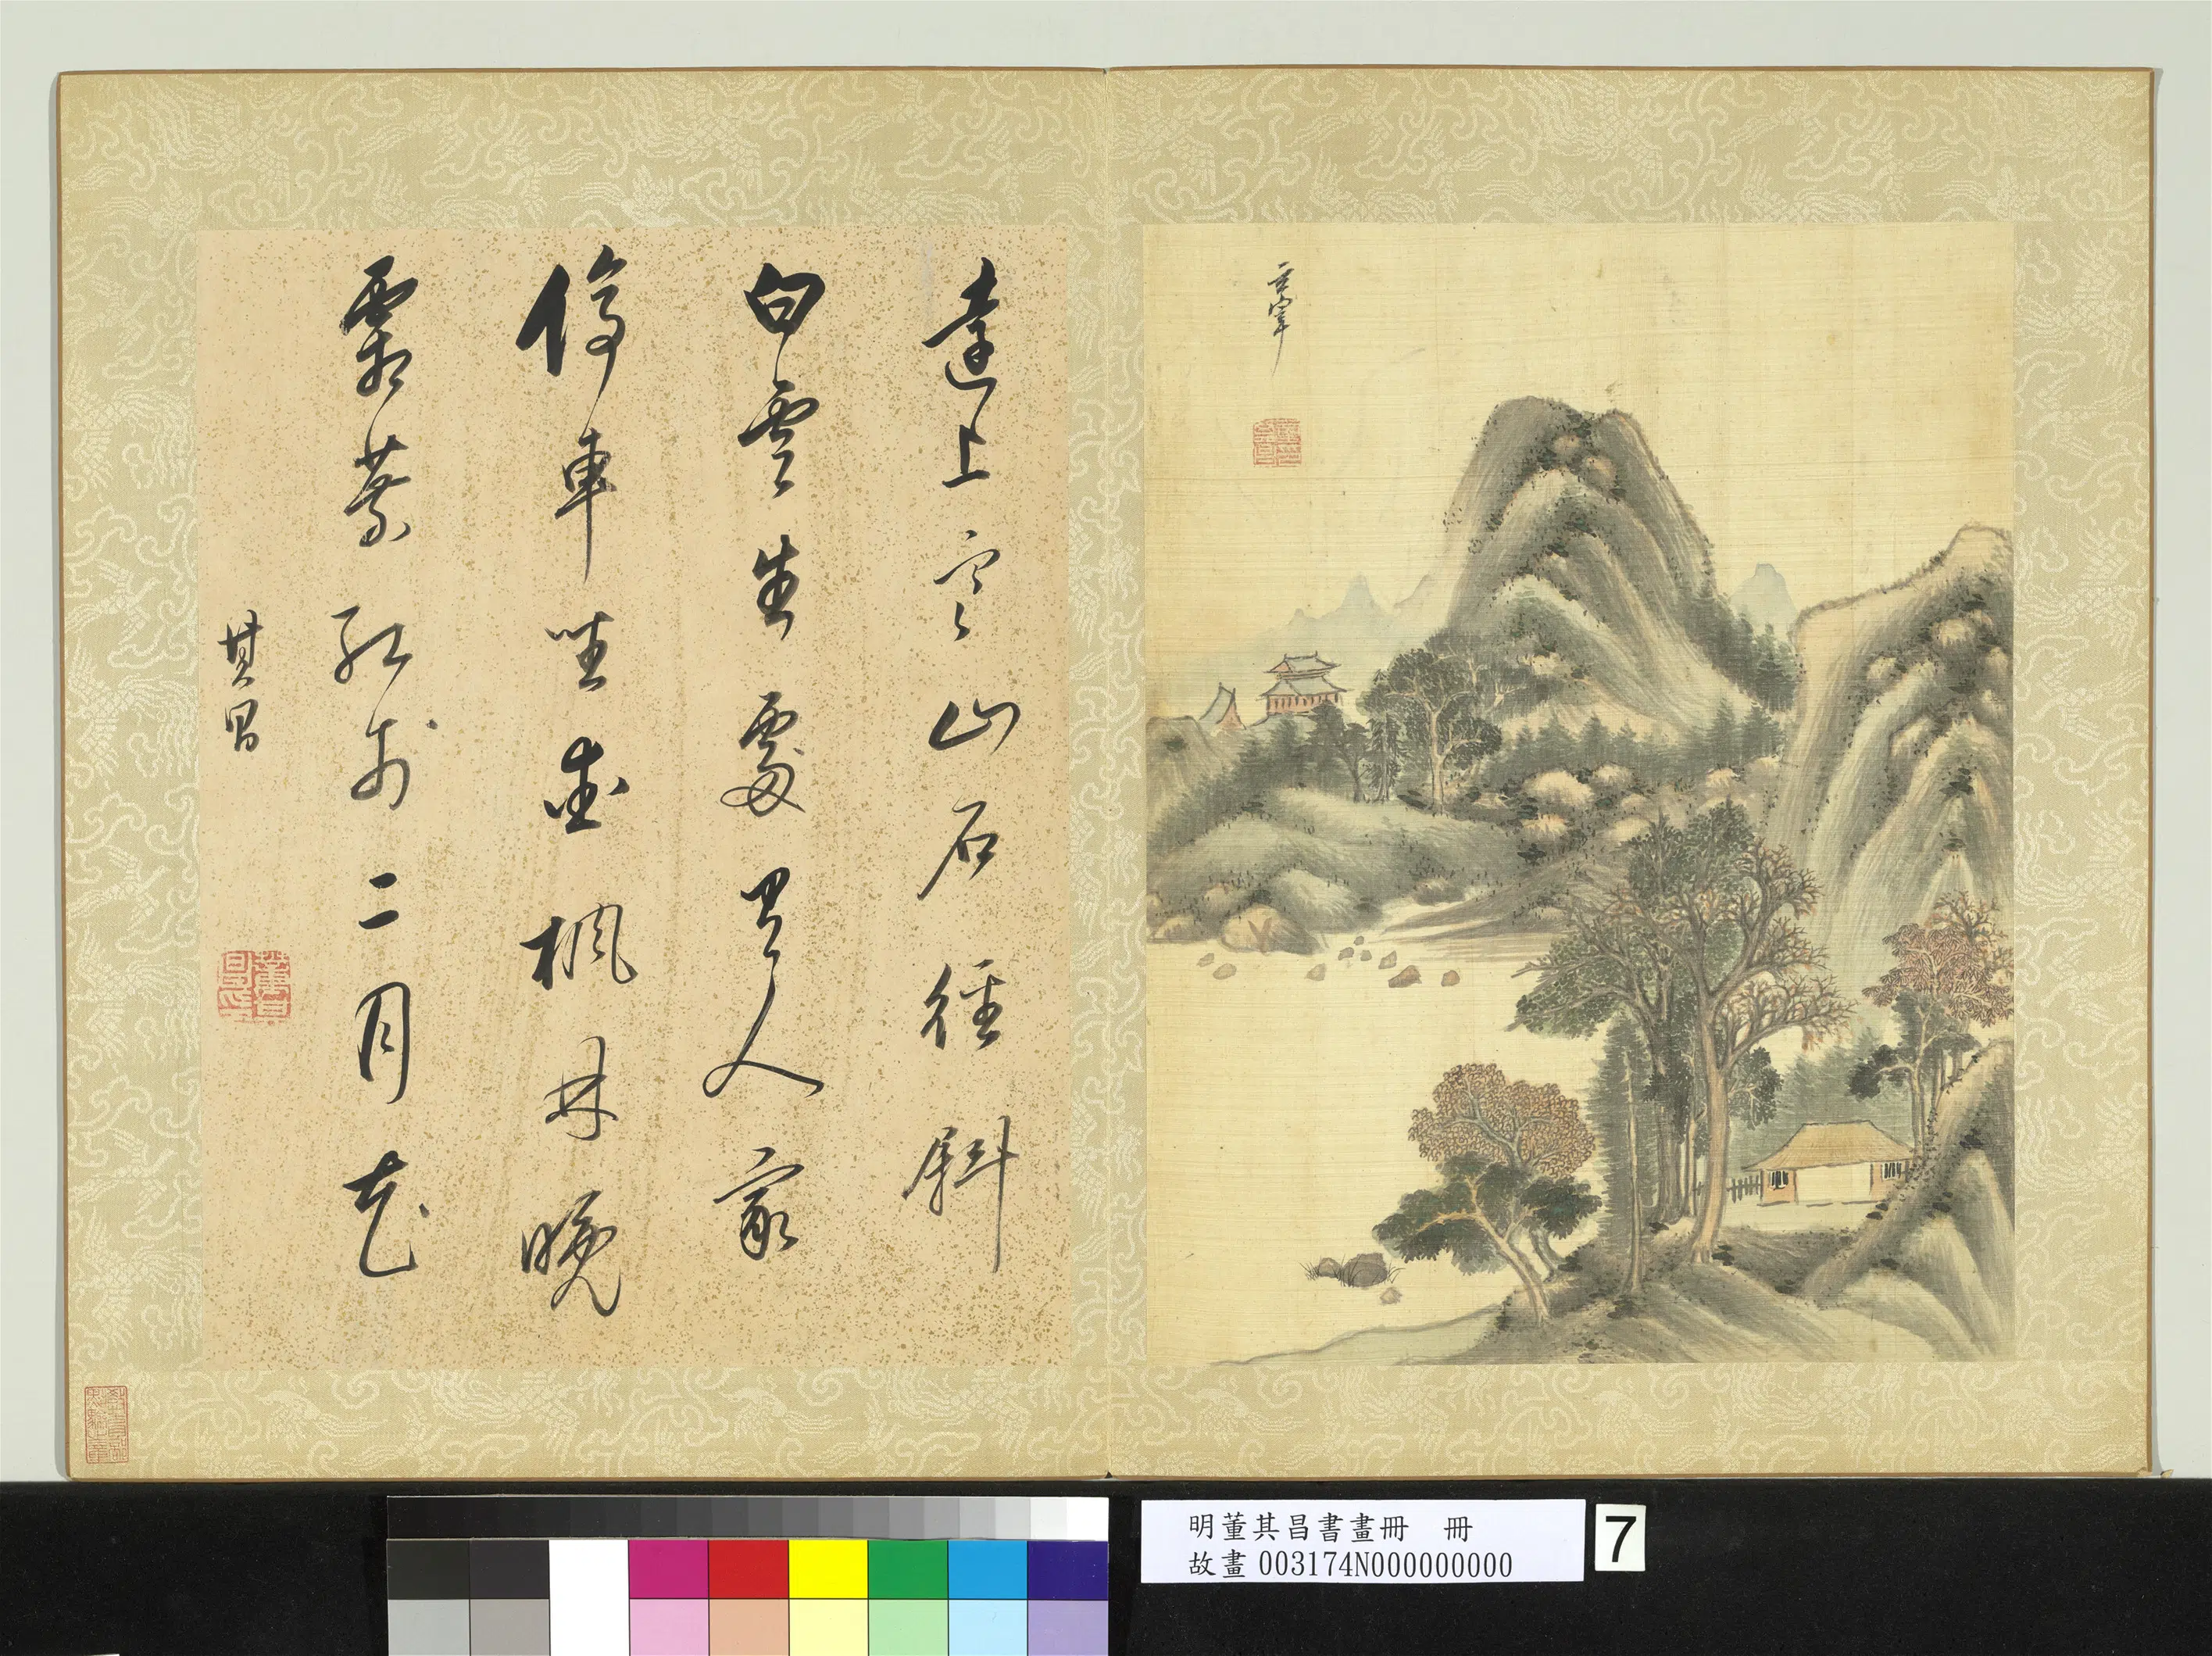 玄宰
遠上寒山石徑斜
白雲生處有人家
停車坐愛楓林晚
霜葉紅於二月花
其昌
董其昌印
明董其昌書畫冊　冊
故畫 003174N000000000
7